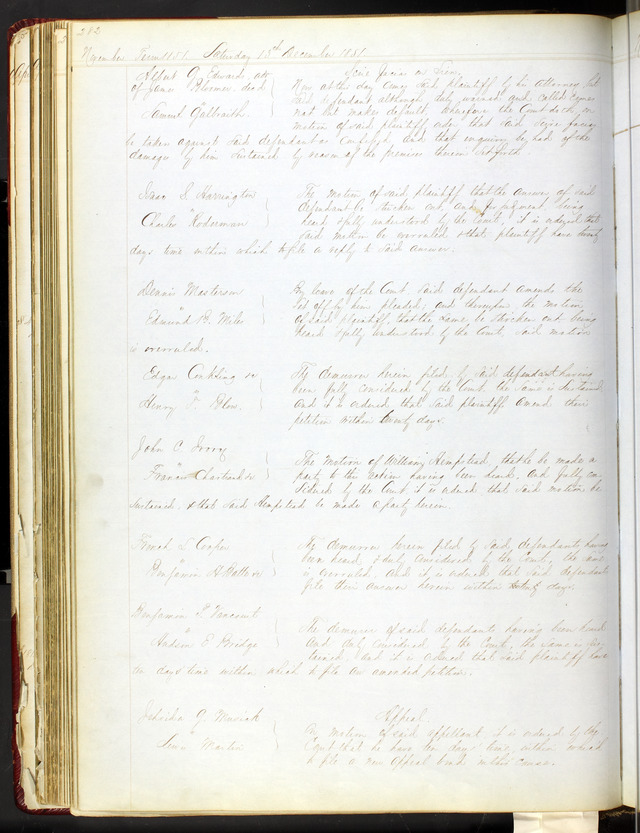 282
November Term 1851 Saturday 13th December 1851
Albert G Edwards
of James decd
Samuel Galbraith
Scire facias on
Now at this day comes said plaintiff by his attorney but
said defendant although duly warned and called comes
not but makes default wherefore the Court doth on
motion of said plaintiff order that said Scire facias
be taken against said defendant as confessed and that inquiry be had of the
damages by him sustained by reason of the premises therein set forth
Isaac S. Harrington
vs
Charles
The motion of said plaintiff that the answer of said
defendant be stricken out and for judgment being
heard & fully understood by the Court it is ordered that
said motion be overruled & that plaintiff have twenty
days time within which to file a reply to said answer.
Dennis Masterson
vs
Edmund H. Miles
By leave of the Court said defendant amends the
set off by him pleaded, and thereupon the motion
of said plaintiff that the same be stricken out being
heard & fully understood by the Court said motion
is overruled.
Edgar Conkling
vs
Henry T. Blow.
The demurrer herein filed by said defendant having
been fully considered by the Court the same is sustained
and it is ordered that said plaintiff amend their
petition within twenty days.
John C.
vs
Francis
The motion of William Hempstead that he be made a
party to this action having been heard, and fully con
sidered by the Court it is ordered that said motion be
sustained & that said Hempstead be made a party herein.
Cooper
vs
Benjamin
The demurrer herein filed by said defendants having
been heard & duly considered by the Court, the same
is overruled, and it is ordered that said defendants
file their answer herein within twenty days.
Benjamin
vs
Hudson E Bridge
The demurrer of said defendants having been heard
and duly considered by the Court, the same is sus
tained and it is ordered that said plaintiff have
ten days time within which to file an amended petition.
vs
Martin
Appeal
On motion of said appellant it is ordered by the
Court that he have ten days time within which
to file a new appeal bond in this cause.